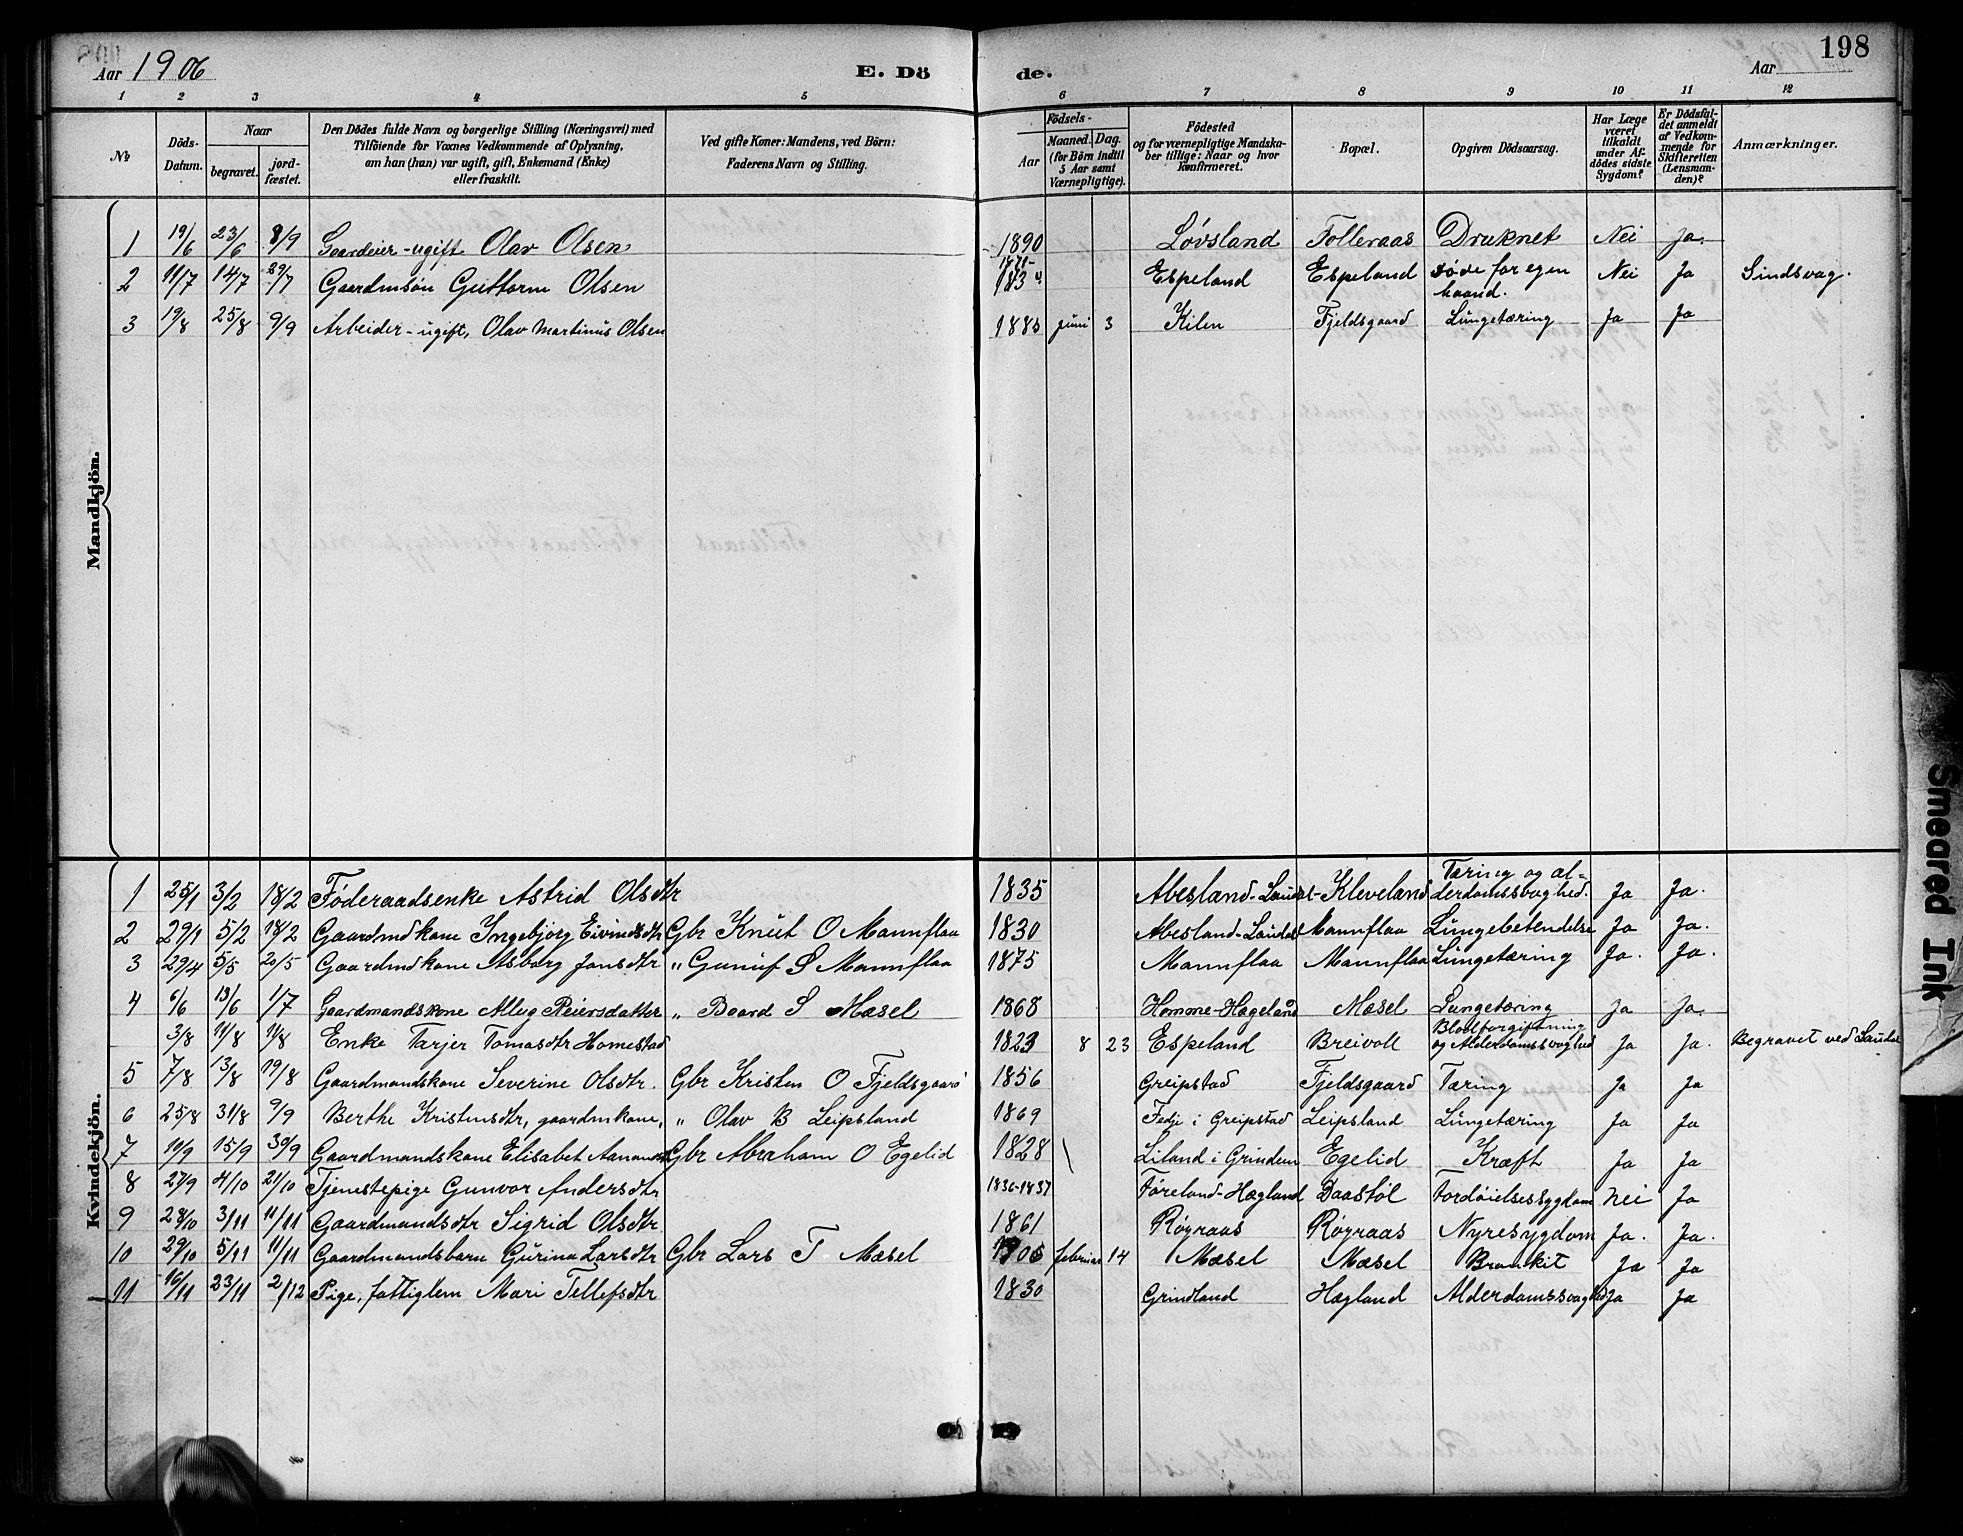 Aar 1906 E. Dö de. Aar 198
1 2 3 4 5 6 7 8 9 10 11 12
№ Döds-Datum. Naar begravet. jordfæstet. Den Dödes fulde Navn og borgerlige Stilling (Næringsvei) med Tilföiende for Voxnes Vedkommende af Oplysning, om han (hun) var ugift, gift, Enkemand (Enke) eller fraskilt. Ved gifte Koner: Mandens, ved Börn: Faderens Navn og Stilling. Födsels- Aar Maaned. Dag. (for Börn indtil 5 Aar samt Værnepligtige). Födested og for værnepligtige Mandskaber tillige: Naar og hvor konfirmeret. Bopæl. Opgiven Dödsaarsag. Har Læge været tilkaldt under Afdödes sidste Sygdom? Er Dödsfaldet anmeldt af Vedkommende for Skifteretten (Lensmanden)? Anmærkninger.
Mandkjön.
1 19/6 23/6 8/9 Gaardeier - ugift Olav Olsen 1890 Løvsland Folleraas Druknet Nei Ja.
2 11/7 14/7 29/7 Gaardmsøn Guttorm Olsen Espeland Espeland døde for egen haand. Nei Ja Sindsvag.
3 19/8 25/8 9/9 Arbeider - ugift, Olav Martinus Olsen 1885 juni 3 Kilen Fjeldsgaard Lungetæring Ja Ja
Kvindekjön.
1 25/1 3/2 18/2 Føderaadsenke Astrid Olsdtr 1835 Abesland-Laudal Kleveland Tæring og alderdomssvaghed. Ja Ja.
2 29/1 5/2 18/2 Gaardmdkone Ingebjørg Eivindsdtr Gbr Knut O Mannflaa 1830 Abesland-Laudal Mannflaa Lungebetendelse Ja Ja.
3 29/4 5/5 20/5 Gaardmdkone Asborg Jansdtr " Gunuf S Mannflaa 1875 Mannflaa Mannflaa Lungetæring Ja. Ja.
4 6/6 13/6 1/7 Gaardmandskone Reiersdatter " Baard S Mæsel 1868 Homme-Hægeland Mæsel Lungetæring Ja Ja.
3/8 11/8 11/8 Enke Tarjer Tomasdtr Homestad 1823 8 23 Espeland Breivoll Blodforgiftning og Alderdomssvaghed Ja Ja. Begravet ved Laudal
5 7/8 13/8 19/8 Gaardmandskone Severine Olsdtr. Gbr Kristen O Fjeldsgaard 1856 Greipstad Fjeldsgaard Tæring Ja Ja
6 25/8 31/8 9/9 Berthe Kristensdtr, gaardmkone, " Olav B Leipsland 1869 Fedje i Greipstad Leipsland Lungetæring Ja Ja
7 10/9 15/9 30/9 Gaardmandskone Elisabet Aanundsdtr Gbr Abraham O Egelid 1828 Liland i Grindem Egelid Kræft Ja Ja
8 27/9 4/10 21/10 Tjenestepige Gunvor Andersdtr 1836-1837 Føreland-Hægland Baastøl Fordøielsessygdom Nei Ja
9 28/10 3/11 11/11 Gaardmandsdtr Sigrid Olsdtr 1861 Røyraas Røyraas Nyresygdom Ja. Ja.
10 29/10 5/11 11/11 Gaardmandsbarn Gurina Larsdtr Gbr Lars T Mæsel 1906 februar 14 Mæsel Mæsel Bronkit Ja Ja
11 16/11 23/11 2/12 Pige, fattiglem Mari Tellefsdtr 1830 Grindland Hægland Alderdomssvaghed Ja Ja
Smeared Ink